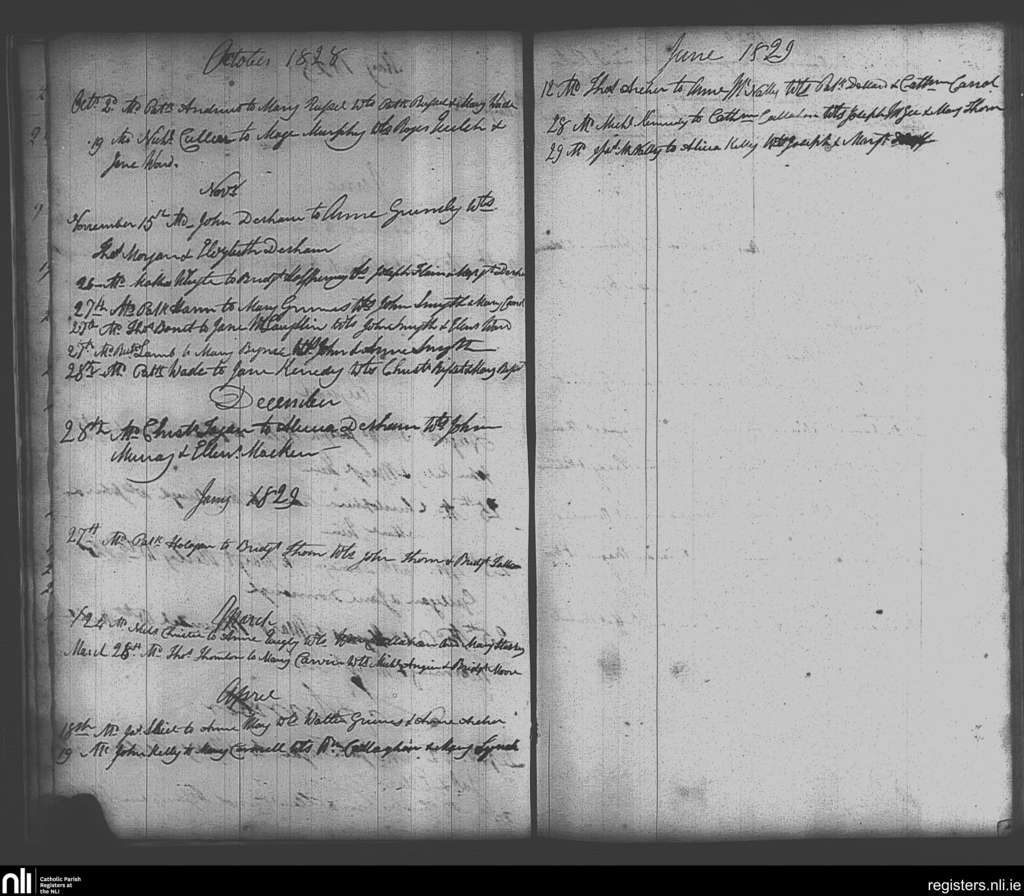 October 1828
Octr 2d Mr Patk Andrew to Mary Rupel Wts Patk Rupel & Mary Wade
19 Mr Nichs Collier to Mage Murphy Wts Roger Welch &
Jane Ward.
Novr
November 15th Md John Derham to Anne Grumly Wts
Thos Morgan & Elizbeth Derham
26 Mr Mathw Whyte to Bridgt Heffernan Wts Joseph & Margt
27th Mr Patk Hamn to Mary Grumes Wts John Smyth & Mary
27th Mr Thos Bonet to Jane McLaughlin Wts John Smyth & Ward
27th Mr Lamb to Mary Byrne Wts John & Anne Smyth
28th Mr Patk Wade to Jane Kenedy Wts Christr & Mary
December
28th Mr Christ Fagan to Alicia Derham Wts John
Murray & Ellen Macken
Jany 1829
27th Mr Patk Halogan to Bridgt Thorn Wts John Thorn & Bridgt
March
24 Mr Nichs Christie to Anne Wts Callahan and Mary
March 28th Mr Thos Thornton to Mary Carvin Wts Michl & Bridgt Moore
April
18th Mr Jas to Anne May Wts Walter Grimes & Anne Archer
19 Mr John Kelly to Mary Wts Wm Callaghan & Mary Lynch
June 1829
12 Md Thos Archer to Anne McNally Wts Patk Dollard & Cathn Carrol
28 Mr Michl Kennedy to Cathn Callahan Wts Joseph McGee & Mary Thorn
29 Mr McKelly to Alicia Kelly Wts Joseph & Margt
nli
Catholic Parish
Registers at
the NLI
registers.nli.ie